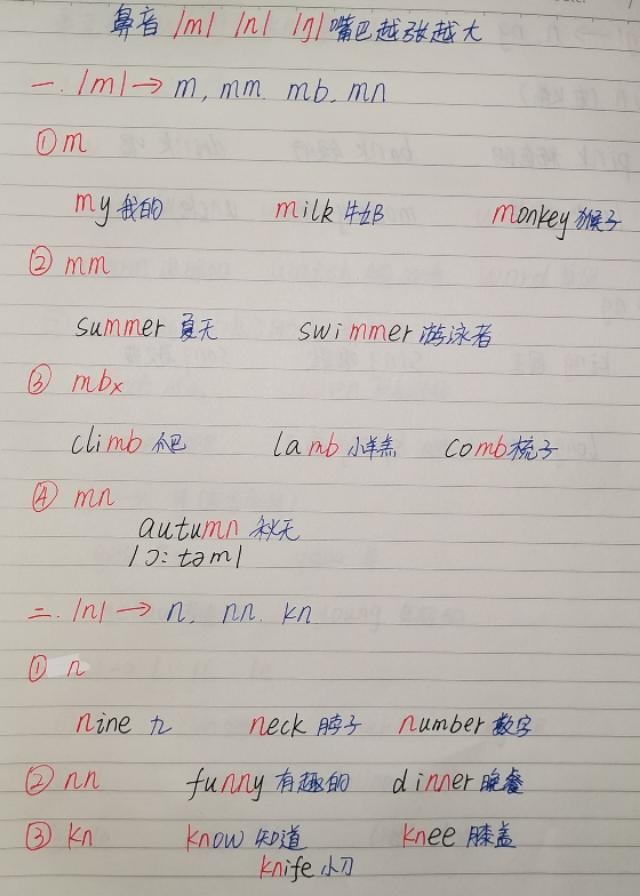 鼻音 /m/ /n/ /ŋ/ 嘴巴越张越大
一. /m/ → m, mm. mb. mn
① m
my 我的 milk 牛奶 monkey 猴子
② mm
summer 夏天 swimmer 游泳者
③ mbx
climb 爬 lamb 小羊羔 comb 梳子
④ mn
autumn 秋天
/ɔ:təm/
二. /n/ → n, nn. kn
① n
nine 九 neck 脖子 number 数字
② nn funny 有趣的 dinner 晚餐
③ kn know 知道 knee 膝盖
knife 小刀